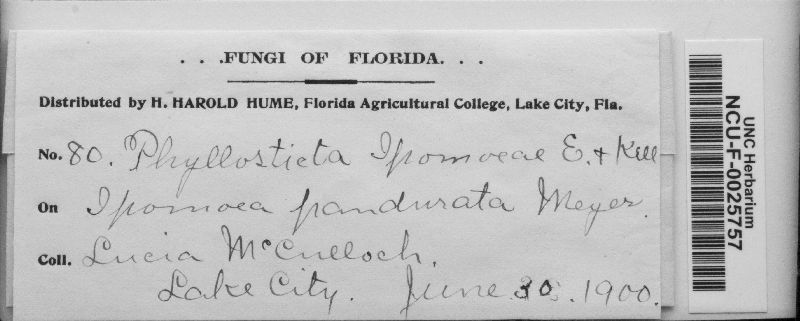 . . .FUNGI OF FLORIDA. . .
Distributed by H. HAROLD HUME, Florida Agricultural College, Lake City, Fla.
No. 80. Phyllosticta Ipomoeae E. + Kell
On Ipomoea pandurata Meyer.
Coll. Lucia McCulloch.
Lake City. June 30. 1900.
UNC Herbarium
NCU-F-0025757